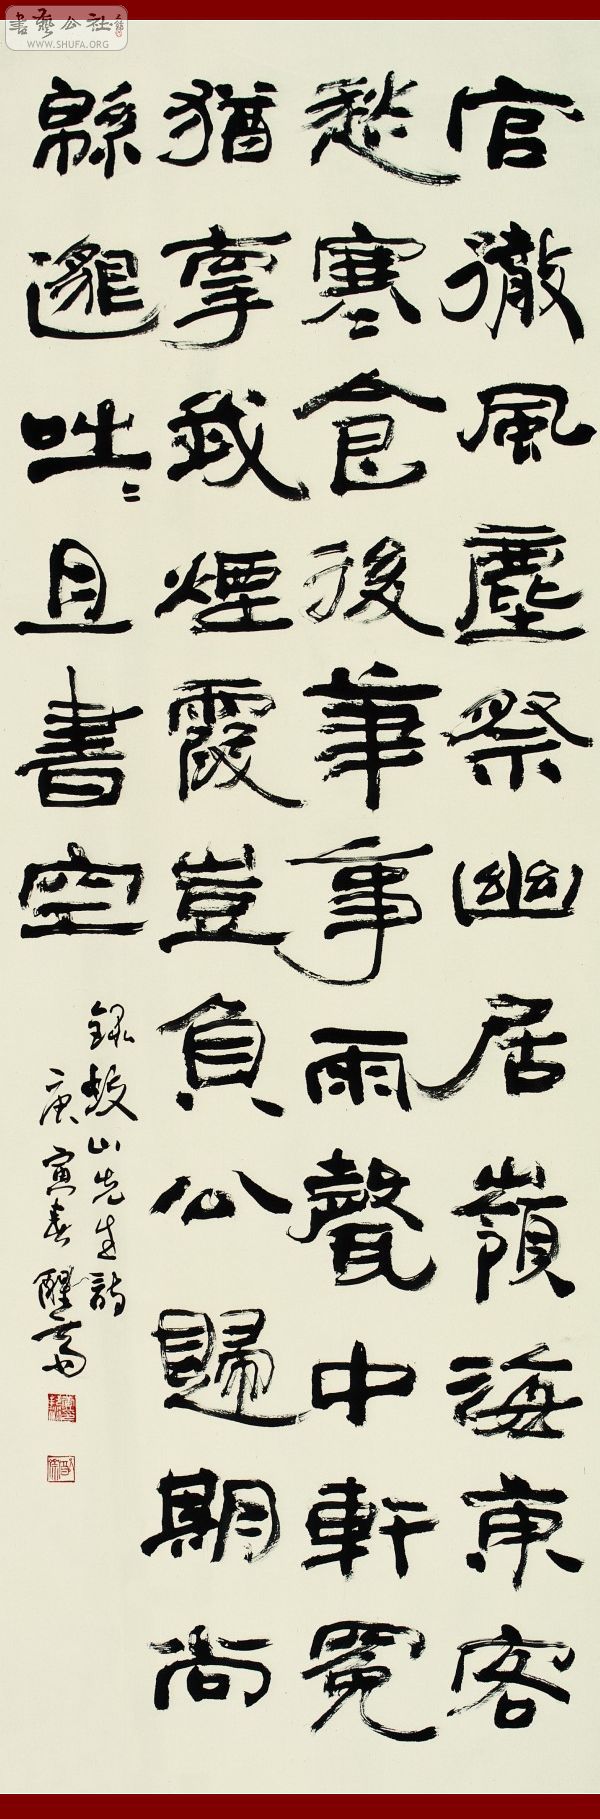 書藝公社
WWW.SHUFA.ORG
官徹風塵祭幽居嶺海東客
愁寒食後華事雨聲中軒冕
猶辜我煙霞豈負公歸期尚
緜邈咄〻且書空
錄山先生詩
庚寅春醒齋